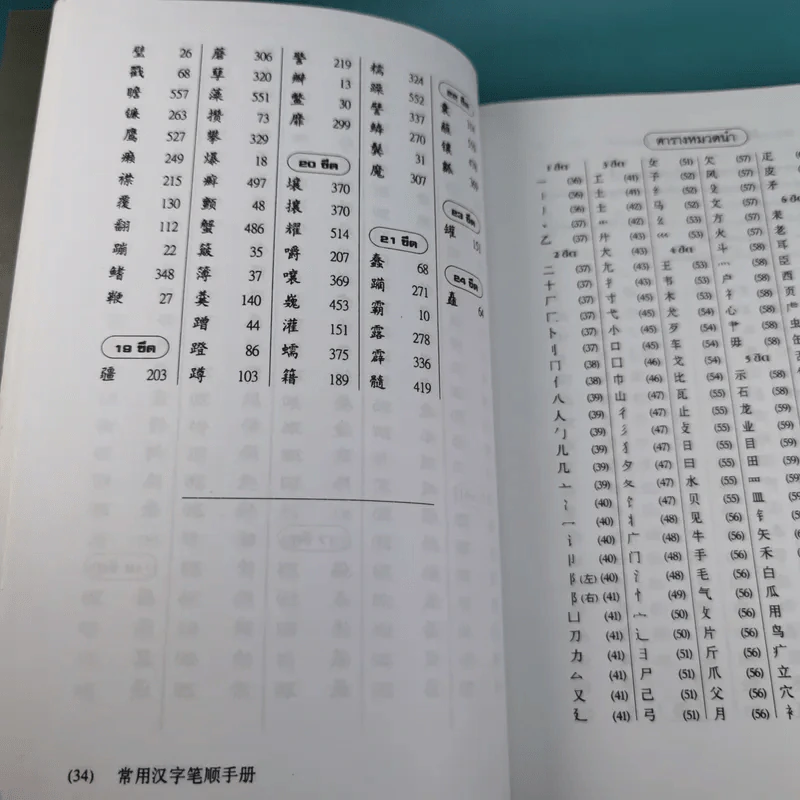 璧 26
戳 68
瞻 557
镰 263
鹰 527
癞 249
襟 215
覆 130
翻 112
蹦 22
鳍 348
鞭 27
19 ขีด
疆 203
蘑 306
孽 320
藻 551
攒 73
攀 329
爆 18
癣 497
颤 48
蟹 486
簸 35
簿 37
羹 140
蹭 44
蹬 86
蹲 103
警 219
瓣 13
鳖 30
靡 299
20 ขีด
壤 370
攘 370
耀 514
嚼 207
嚷 369
巍 453
灌 151
蠕 375
籍 189
糯 324
躁 552
譬 337
鳞 270
鬓 31
魔 307
21 ขีด
蠢 68
躏 271
霸 10
露 278
霹 336
髓 419
22 ขีด
囊
镶
瓤
23 ขีด
罐
24 ขีด
矗
(34) 常用汉字笔顺手册
ตารางหมวดนำ
1 ขีด
一 (36)
丨 (37)
丿 (37)
乙 (37)
2 ขีด
二 (37)
十 (37)
厂 (37)
刂 (38)
冂 (38)
八 (39)
人 (39)
勹 (39)
儿 (39)
几 (39)
亠 (39)
冫 (40)
冖 (40)
讠 (40)
卩 (40)
阝(左) (40)
阝(右) (41)
凵 (41)
刀 (41)
力 (41)
厶 (41)
又 (41)
廴 (41)
3 ขีด
工 (41)
土 (42)
艹 (42)
廾 (43)
大 (43)
尢 (43)
寸 (44)
弋 (45)
小 (45)
口 (45)
囗 (47)
巾 (47)
山 (47)
彳 (47)
彡 (47)
犭 (47)
夕 (47)
夂 (47)
饣 (47)
丬 (48)
广 (48)
门 (48)
氵 (48)
忄 (49)
宀 (50)
辶 (50)
彐 (51)
尸 (51)
己 (51)
弓 (51)
女 (51)
子 (52)
纟 (52)
马 (52)
幺 (53)
巛 (53)
4 ขีด
王 (53)
韦 (53)
木 (53)
犬 (54)
歹 (54)
车 (54)
戈 (54)
比 (54)
瓦 (55)
止 (55)
攴 (55)
日 (55)
曰 (55)
水 (55)
贝 (55)
见 (56)
牛 (56)
手 (56)
毛 (56)
气 (56)
攵 (56)
片 (56)
斤 (56)
爪 (56)
父 (56)
月 (56)
欠 (57)
风 (57)
殳 (57)
文 (57)
方 (57)
火 (57)
斗 (58)
户 (58)
礻 (58)
心 (58)
毋 (58)
5 ขีด
示 (58)
石 (58)
龙 (59)
业 (59)
目 (59)
田 (59)
罒 (59)
皿
钅
矢
禾
白
瓜
用
鸟
疒
立
穴
衤
疋
皮
矛
6 ขีด
耒
老
耳
臣
西
页
虫
缶
舌